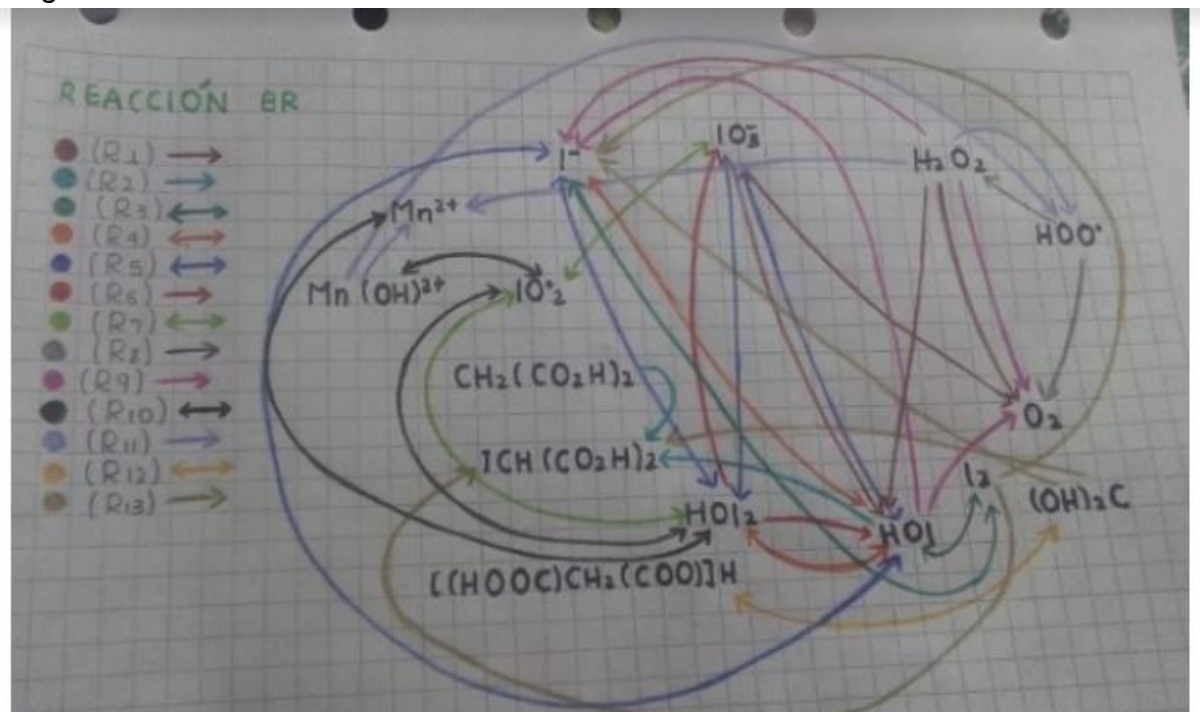 REACCIÓN BR
(R1)
(R2)
(R3)
(R4)
(R5)
(R6)
(R7)
(R8)
(R9)
(R10)
(R11)
(R12)
(R13)
I⁻
IO₃⁻
H₂O₂
Mn²⁺
HOO•
Mn(OH)²⁺
IO•₂
CH₂(CO₂H)₂
O₂
ICH(CO₂H)₂
I₂
(OH)₂C
HOI₂
HOI
[(HOOC)CH₂(COO)]H